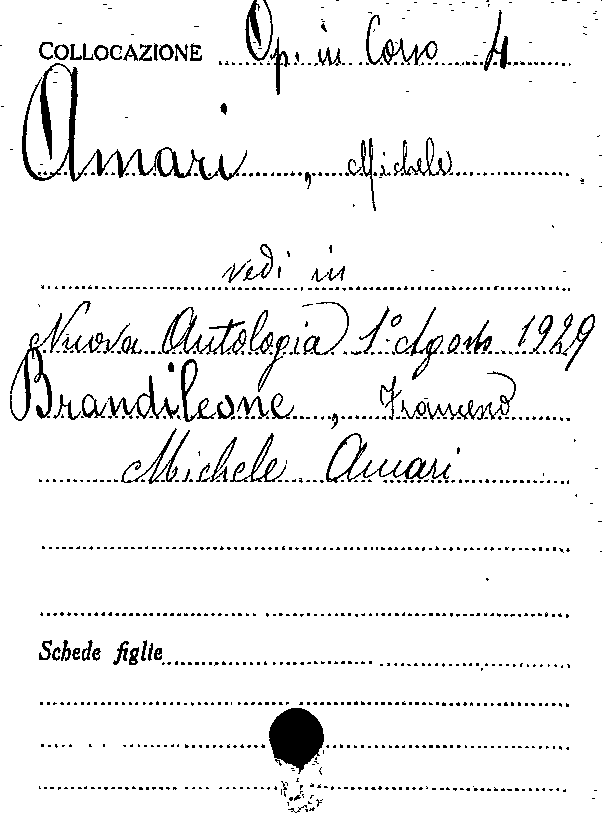 COLLOCAZIONE Op. in Corso 4
Amari, Michele
vedi in
Nuova Antologia 1° Agosto 1929
Brandileone, Francesco
Michele Amari
Schede figlie